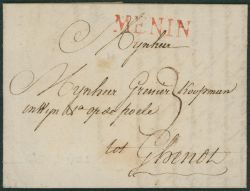 MENIN
Mynheer
Mynheer Grenier Koopman
in Wyn &a op de poele
tot Ghendt